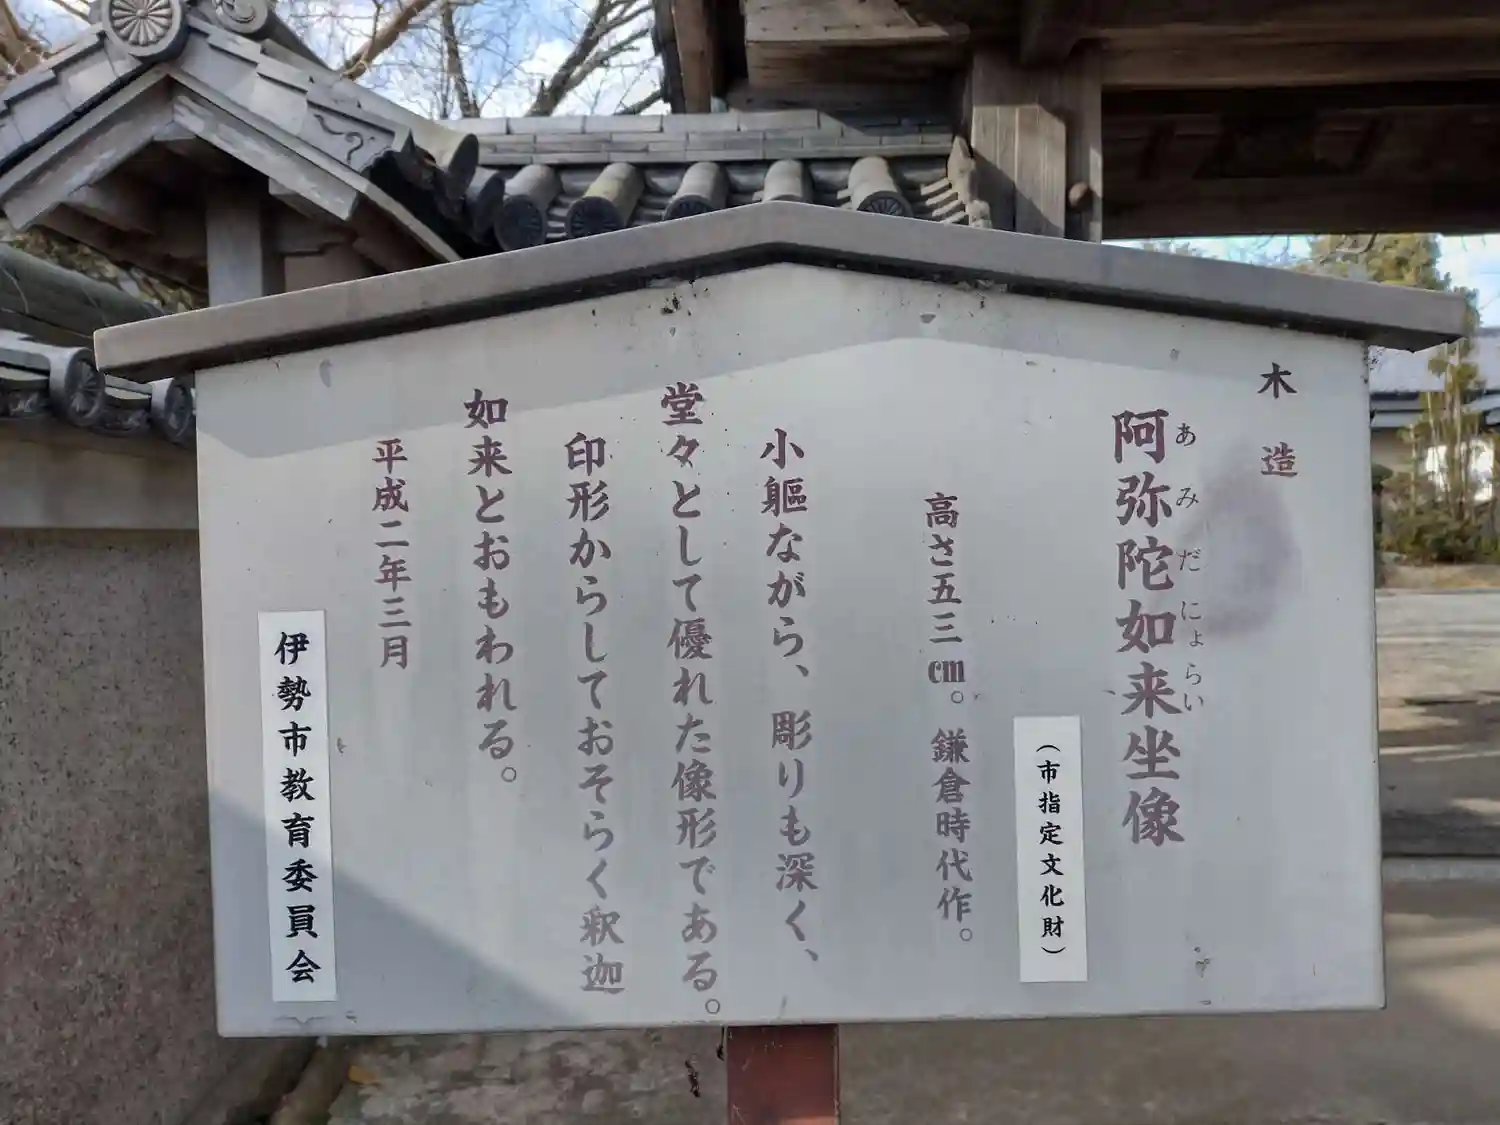 木造
阿弥陀如来坐像
あみだにょらい
（市指定文化財）
高さ五三㎝。鎌倉時代作。
小軀ながら、彫りも深く、
堂々として優れた像形である。
印形からしておそらく釈迦
如来とおもわれる。
平成二年三月
伊勢市教育委員会